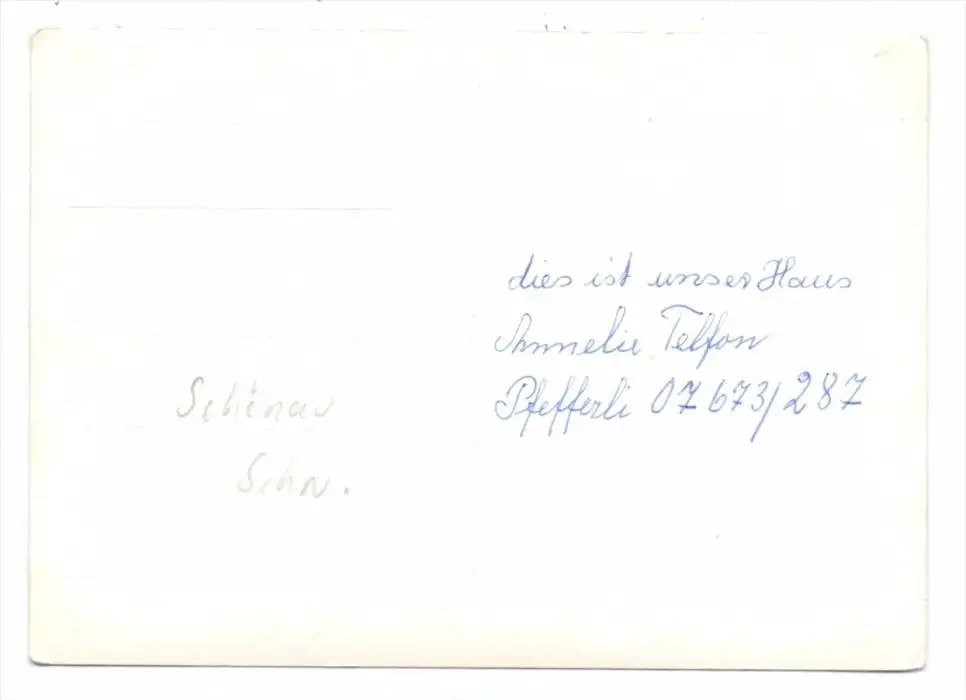 dies ist unser Haus
Annelie Telfon
Pfefferli 07673/287
Schönau
Schw.